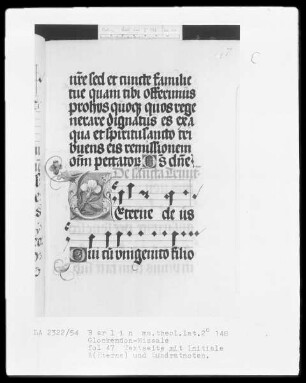 nr̄e sed et cuncte familie
tue quam tibi offerimus
pro hiis quoq; quos rege
nerare dignatus es ex a
qua et spiritu sancto tri
buens eis remissionem
om̄ peccator̄ Q̄s dn̄e
De sancta Trinit
Eterne de us
Qui cū unigenito filio
LA 2322/54 Berlin ms.theol.lat.2° 148
Glockendon-Missale
fol 87 Textseite mit Initiale
E(Eterne) und Quadratnoten.